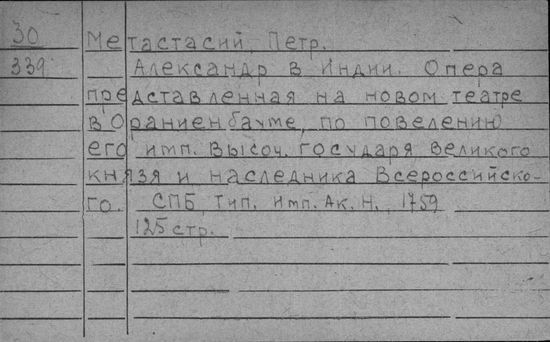 30 Метастасий, Петр.
339 Александр в Индии. Опера
представленная на новом театре
в Ораниенбауме, по повелению
его имп. высоч. государя великого
князя и наследника Всероссийско-
го. СПБ, тип. имп. Ак. Н., 1759
125 стр.